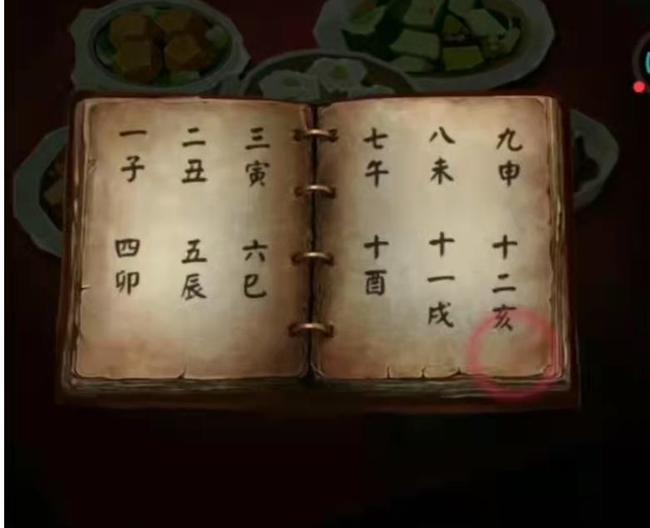 一子
二丑
三寅
四卯
五辰
六巳
七午
八未
九申
十酉
十一戌
十二亥